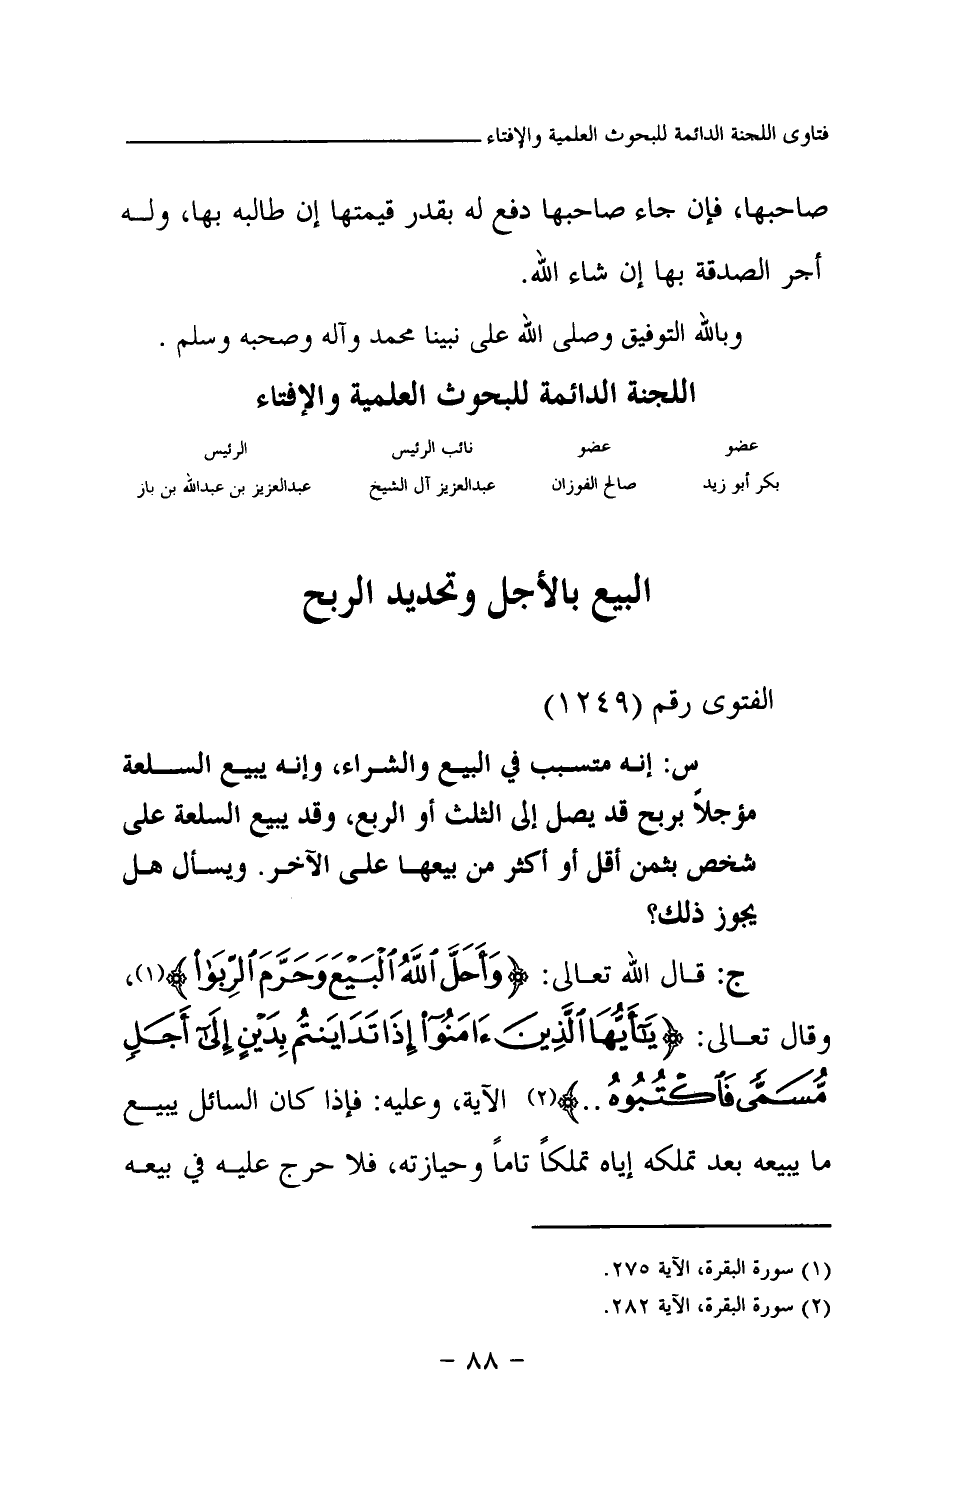 فتاوى اللجنة الدائمة للبحوث العلمية والإفتاء
صاحبها، فإن جاء صاحبها دفع له بقدر قيمتها إن طالبه بها، ولـه
أجر الصدقة بها إن شاء الله.
وبالله التوفيق وصلى الله على نبينا محمد وآله وصحبه وسلم .
اللجنة الدائمة للبحوث العلمية والإفتاء
عضو عضو نائب الرئيس الرئيس
بكر أبو زيد صالح الفوزان عبدالعزيز آل الشيخ عبدالعزيز بن عبدالله بن باز
البيع بالأجل وتحديد الربح
الفتوى رقم (١٢٤٩)
س: إنه متسبب في البيع والشراء، وإنه يبيع السلعة
مؤجلاً بربح قد يصل إلى الثلث أو الربع، وقد يبيع السلعة على
شخص بثمن أقل أو أكثر من بيعها على الآخر. ويسأل هل
يجوز ذلك؟
ج: قال الله تعالى: ﴿وَأَحَلَّ ٱللَّهُ ٱلْبَيْعَ وَحَرَّمَ ٱلرِّبَوٰا۟﴾(١)،
وقال تعالى: ﴿يَـٰٓأَيُّهَا ٱلَّذِينَ ءَامَنُوٓا۟ إِذَا تَدَايَنتُم بِدَيْنٍ إِلَىٰٓ أَجَلٍ
مُّسَمًّى فَٱكْتُبُوهُ ..﴾(٢) الآية، وعليه: فإذا كان السائل يبيع
ما يبيعه بعد تملكه إياه تملكاً تاماً وحيازته، فلا حرج عليه في بيعه
(١) سورة البقرة، الآية ٢٧٥.
(٢) سورة البقرة، الآية ٢٨٢.
- ٨٨ -